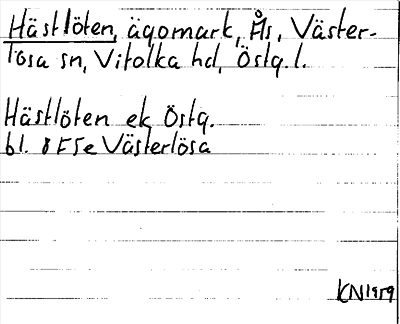 Hästlöten, ägomark, Ås, Väster-
lösa sn, Vifolka hd, Östg. l.
Hästlöten ek Östg.
bl. 8 F5e Västerlösa
KN 1959